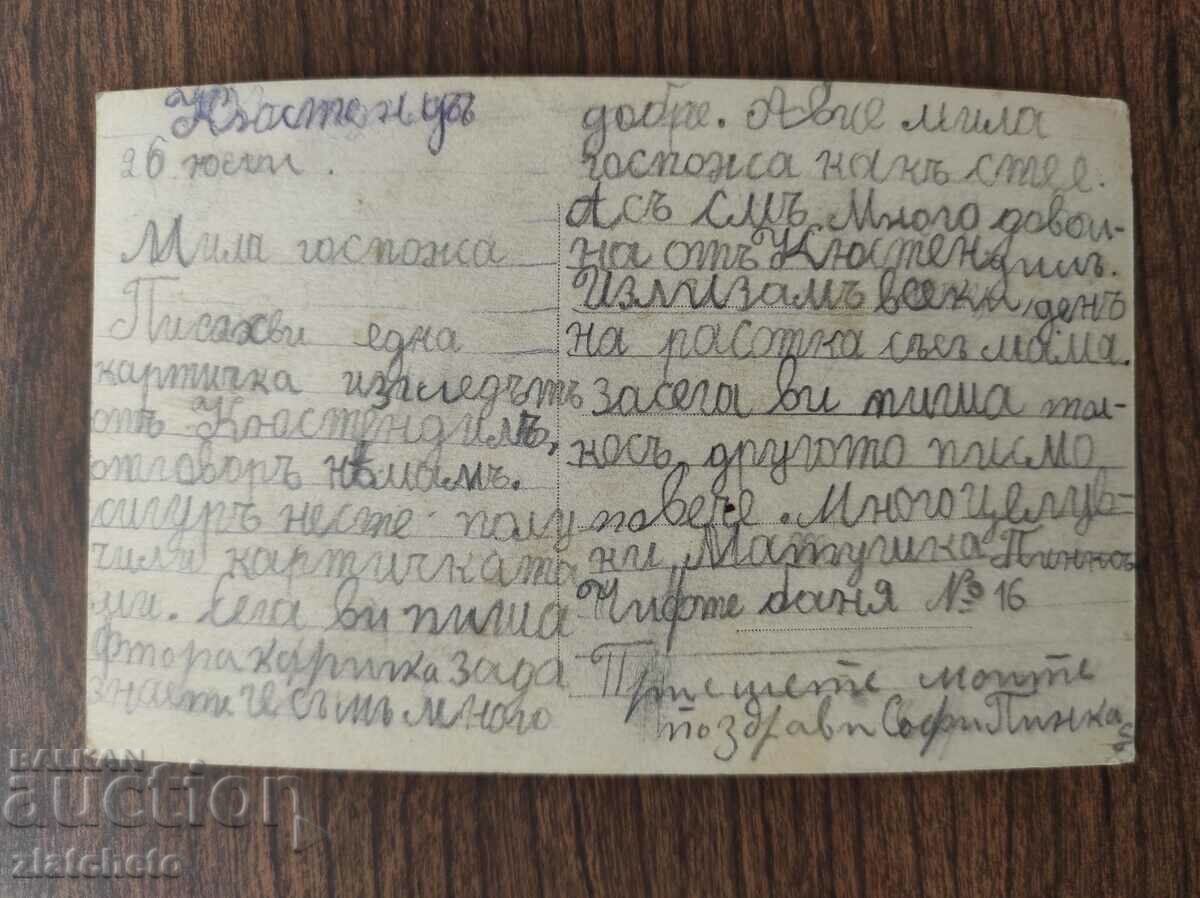 Кюстендъ
26 юли.
Мила госпожа
Писахви една
картичка изгледътъ
отъ Кюстендилъ,
отговоръ нѣмамъ.
сигуръ несте полу
чили картичката
ми. Сега ви пиша
фтора картичка зада
знаети че съмъ много
добре. Авие мила
госпожа какъ стее.
Асъ смъ много довол-
на отъ Кюстендилъ.
Излизамъ всеки день
на расотка съсъ мама.
засега ви пиша то-
косъ другото писмо
повече. Много целув-
ки Матушка Пинкоъ
Чифте баня № 16
Приемете моите
поздрави Софи Пинка
BALKAN
auction
zlatcheto